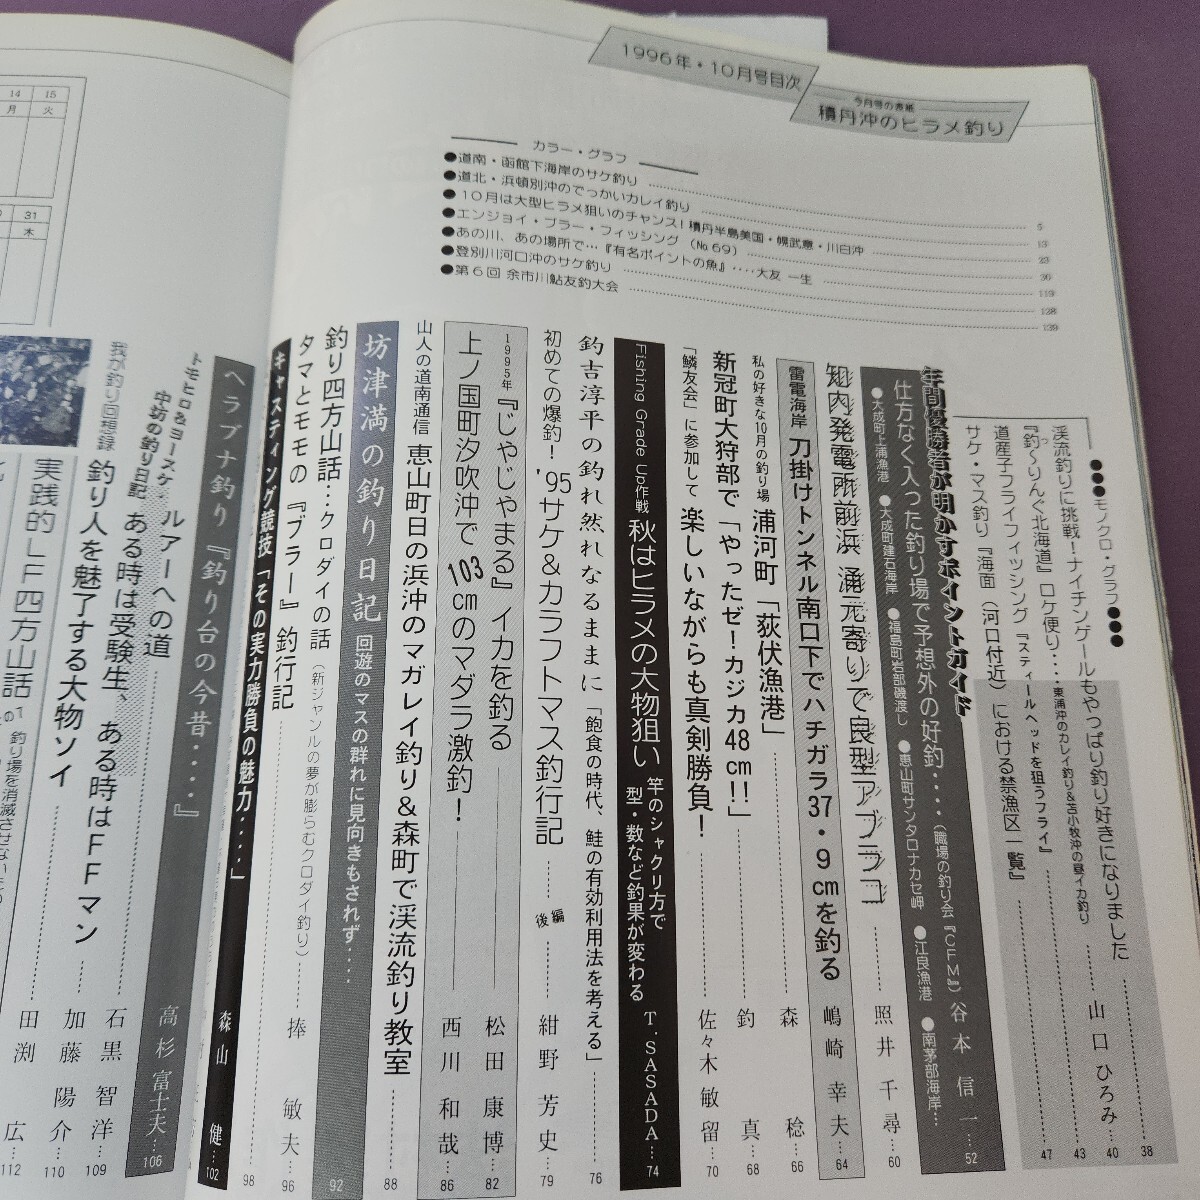 1996年・10月号目次
今月号の表紙
積丹沖のヒラメ釣り
カラー・グラフ
●道南・函館下海岸のサケ釣り 5
●道北・浜頓別沖のでっかいカレイ釣り 13
●10月は大型ヒラメ狙いのチャンス!積丹半島美国・幌武意・川白沖 23
●エンジョイ・ブラー・フィッシング(No.69) 30
●あの川、あの場所で…『有名ポイントの魚』‥‥大友 一生 119
●登別川河口沖のサケ釣り 138
●第6回 余市川鮎友釣大会 139
●●●モノクロ・グラフ●●●
渓流釣りに挑戦!ナイチンゲールもやっぱり釣り好きになりました 山口 ひろみ… 38
『釣〜りんぐ北海道』ロケ便り…東浦沖のカレイ釣り&苫小牧沖の昼イカ釣り 40
道産子フライフィッシング『スティールヘッドを狙うフライ』 43
サケ・マス釣り『海面(河口付近)における禁漁区一覧』 47
年間優勝者が明かすポイントガイド
仕方なく入った釣り場で予想外の好釣‥‥(職場の釣り会『CFM』)谷本 信一… 52
●大成町上浦漁港 ●大成町建石海岸 ●福島町岩部磯渡し ●恵山町サンタロナカセ岬 ●江良漁港 ●南茅部海岸…
知内発電所前浜 涌元寄りで良型アブラコ 照井 千尋… 60
雷電海岸 刀掛けトンネル南口下でハチガラ37・9cmを釣る 嶋崎 幸夫… 64
私の好きな10月の釣り場 浦河町「荻伏漁港」 森 稔… 66
新冠町大狩部で「やったゼ!カジカ48cm!!」 釣 真… 68
「鱗友会」に参加して 楽しいながらも真剣勝負! 佐々木 敏留… 70
Fishing Grade Up作戦 秋はヒラメの大物狙い 竿のシャクリ方で型・数など釣果が変わる T.SASADA… 74
釣吉淳平の釣れ然れなるままに「飽食の時代、鮭の有効利用法を考える」 76
初めての爆釣!'95サケ&カラフトマス釣行記 後編 紺野 芳史… 79
1995年『じゃじゃまる』イカを釣る 松田 康博… 82
上ノ国町汐吹沖で103cmのマダラ激釣! 西川 和哉… 86
山人の道南通信 恵山町日の浜沖のマガレイ釣り&森町で渓流釣り教室 88
坊津満の釣り日記 回遊のマスの群れに見向きもされず‥‥ 92
釣り四方山話…クロダイの話(新ジャンルの夢が膨らむクロダイ釣り) 捧 敏夫… 96
タマとモモの『ブラー』釣行記 98
キャスティング競技「その実力勝負の魅力‥‥」 森山 健… 102
ヘラブナ釣り『釣り台の今昔‥‥』 高杉 富士夫… 106
トモヒロ&ヨースケ ルアーへの道
中坊の釣り日記 ある時は受験生、ある時はFFマン 石黒 智洋… 109
我が釣り回想録 釣り人を魅了する大物ソイ 加藤 陽介… 110
実践的LF四方山話 田渕 広 112
14 15
月 火
31
木